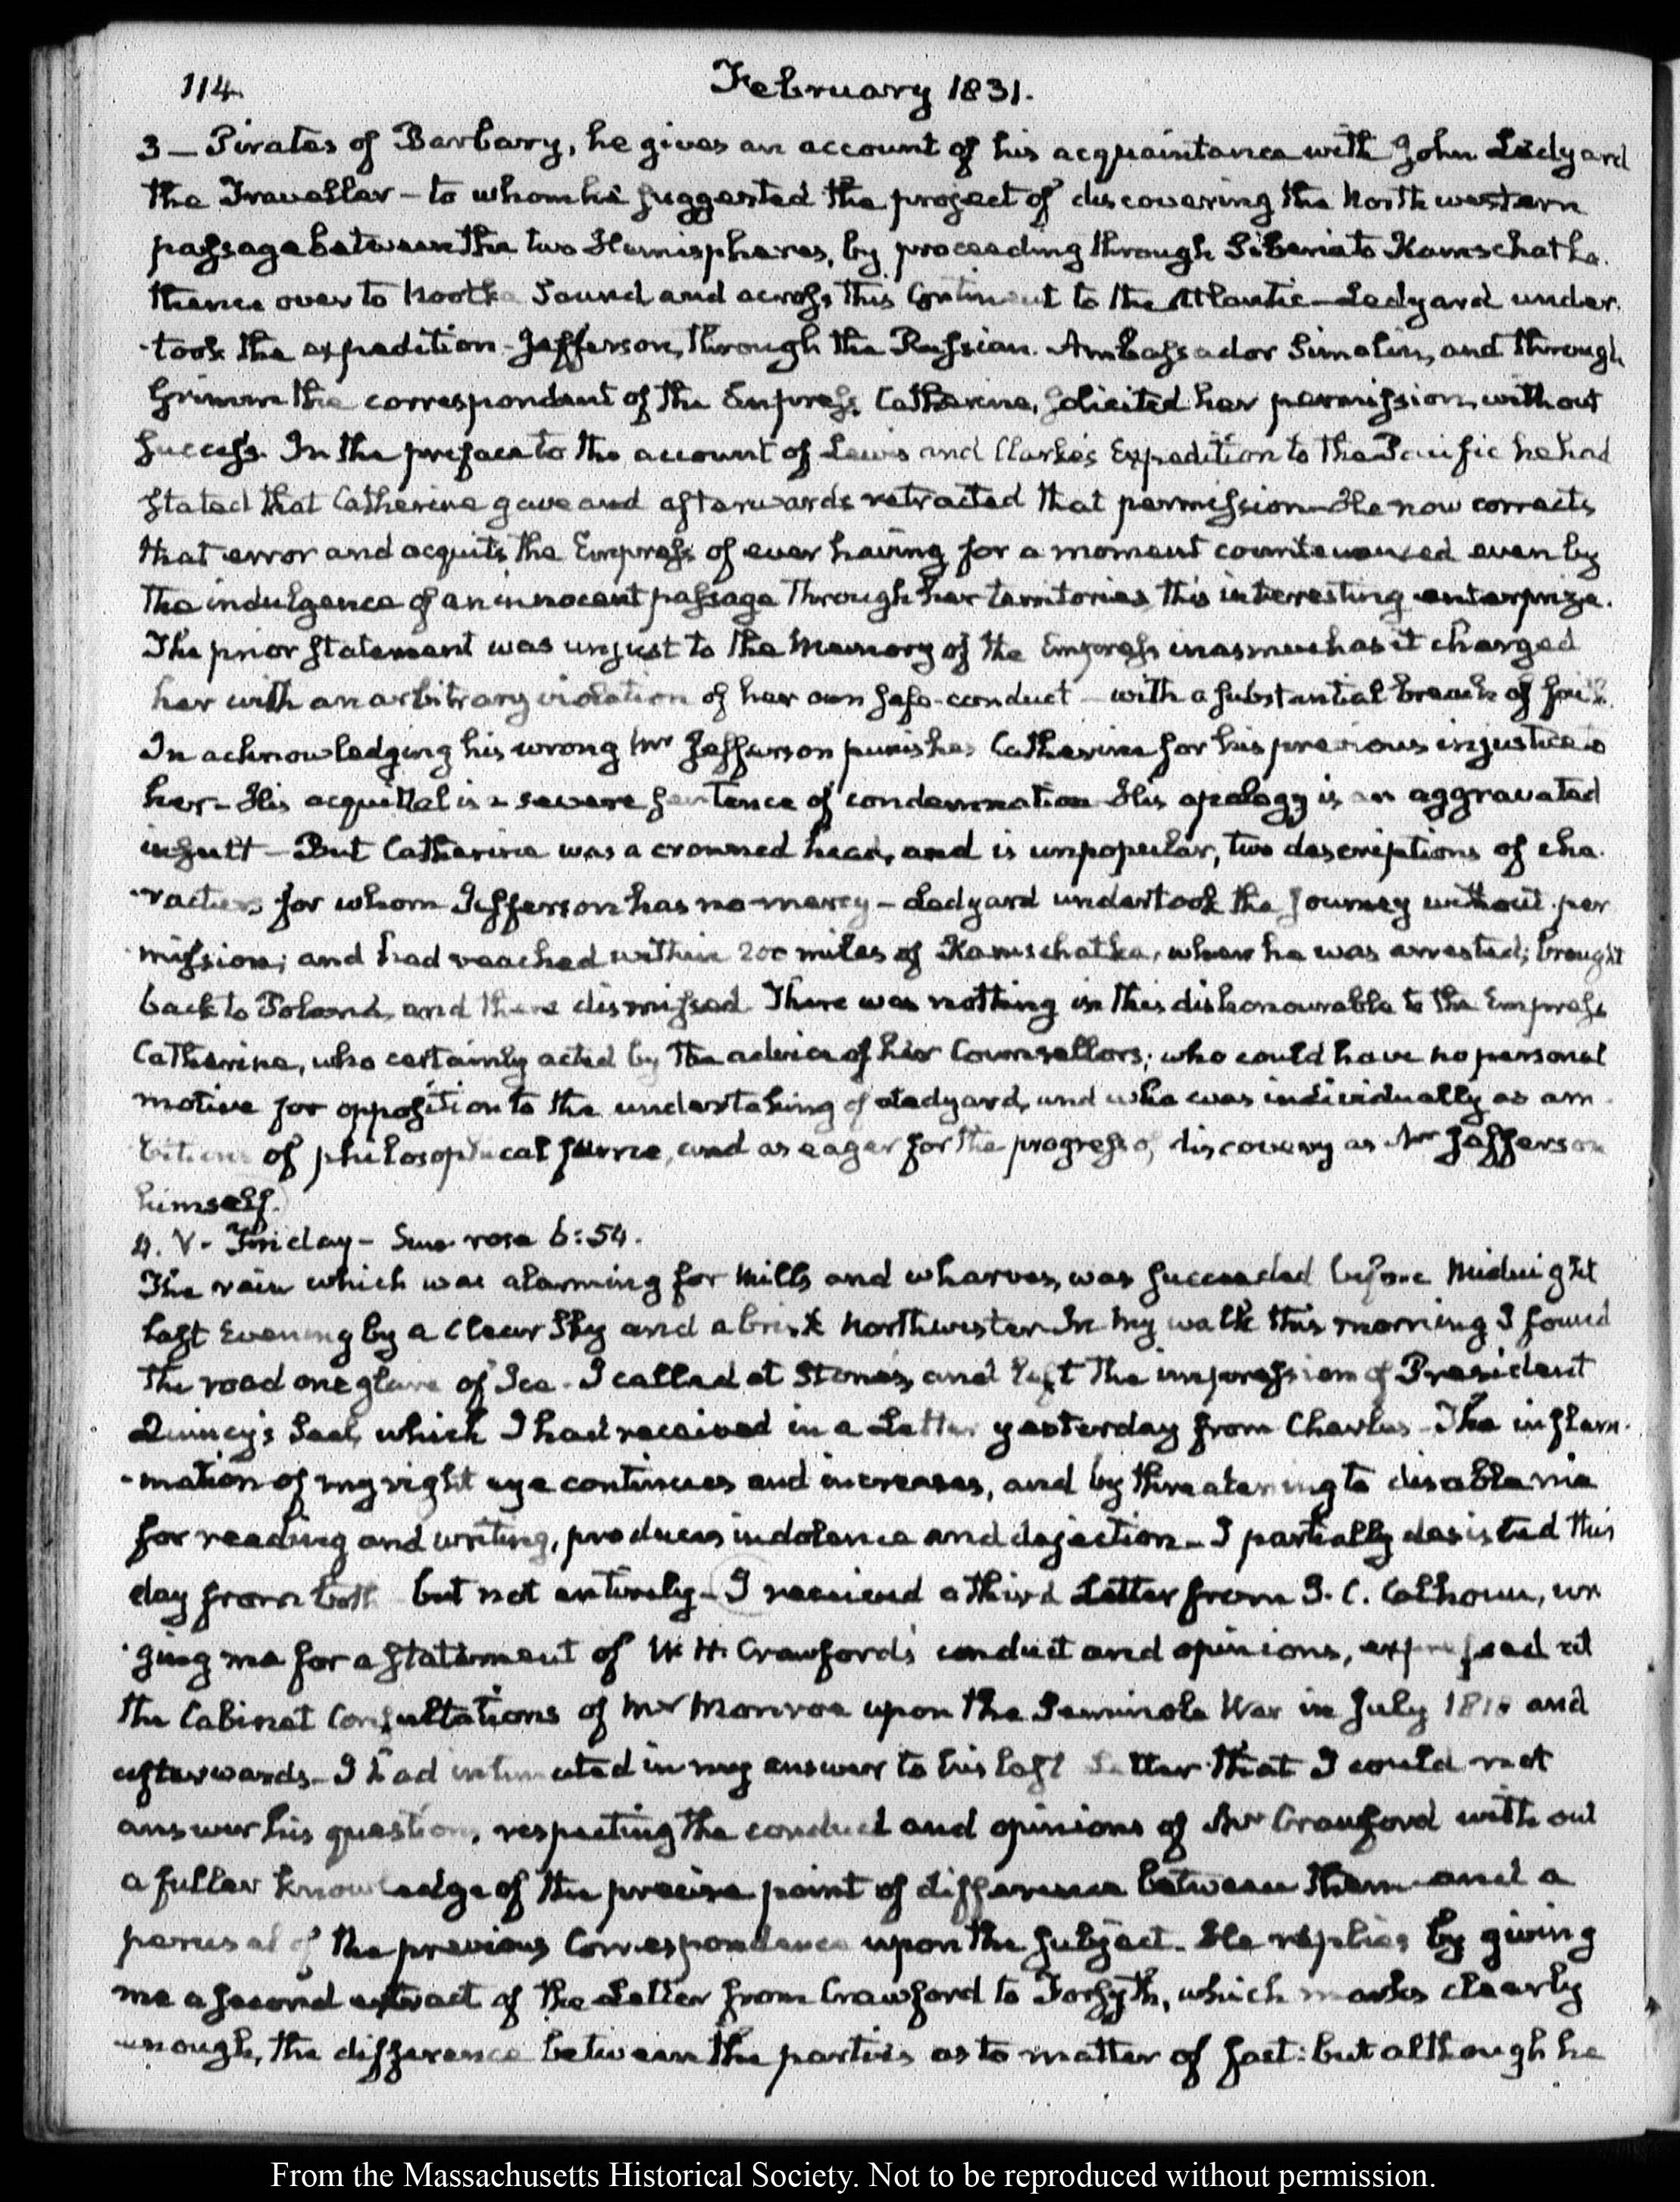 114.
February 1831.
3 — Pirates of Barbary, he gives an account of his acquaintance with John Ledyard
the Traveller — to whom he suggested the project of discovering the North western
passage between the two Hemispheres, by proceeding through Siberia to Kamschatka.
thence over to Nootka Sound and across this Continent to the Atlantic — Ledyard under-
-took the expedition — Jefferson, through the Russian Ambassador Simolin, and through
Grimm the correspondent of the Empress Catherine, solicited her permission, without
success. In the preface to the account of Lewis and Clarke's Expedition to the Pacific he had
stated that Catherine gave and afterwards retracted that permission — He now corrects
that error and acquits the Empress of ever having for a moment countenanced even by
the indulgence of an innocent passage through her territories this interesting enterprize.
The prior statement was unjust to the Memory of the Empress inasmuch as it charged
her with an arbitrary violation of her own safe-conduct — with a substantial breach of faith.
In acknowledging his wrong Mr Jefferson punishes Catherine for his previous injustice to
her — His acquittal is a severe sentence of condemnation — His apology is an aggravated
insult — But Catherine was a crowned head, and is unpopular, two descriptions of cha-
-racters for whom Jefferson has no mercy — Ledyard undertook the Journey without per-
-mission; and had reached within 200 miles of Kamschatka, when he was arrested; brought
back to Poland, and there dismissed. There was nothing in this dishonourable to the Empress
Catherine, who certainly acted by the advice of her Counsellors; who could have no personal
motive for opposition to the undertaking of Ledyard, and who was individually as am-
-bitious of philosophical fame, and as eager for the progress of discovery as Mr Jefferson
himself.
4. V. Friday — Sun rose 6:54.
The rain which was alarming for Mills and wharves, was succeeded before Midnight
last Evening by a clear Sky and a brisk Northwester. In my walk this morning I found
the road one glare of Ice — I called at Stone's, and left the impression of President
Quincy's Seal, which I had received in a Letter yesterday from Charles — The inflam-
-mation of my right eye continues and increases, and by threatening to disable me
for reading and writing, produces indolence and dejection — I partially desisted this
day from both but not entirely — I received a third Letter from J. C. Calhoun, ur-
-ging me for a statement of W. H. Crawford's conduct and opinions, expressed at
the Cabinet Consultations of Mr Monroe upon the Seminole War in July 1818 and
afterwards — I had intimated in my answer to his last Letter that I could not
answer his questions, respecting the conduct and opinions of Mr Crawford without
a fuller knowledge of the precise point of difference between them and a
perusal of the previous Correspondence upon the subject. He replies by giving
me a second extract of the Letter from Crawford to Forsyth, which marks clearly
enough, the difference between the parties as to matter of fact: but although he
From the Massachusetts Historical Society. Not to be reproduced without permission.